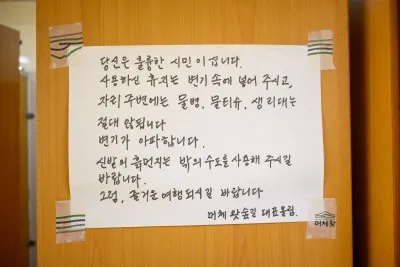 당신은 훌륭한 시민이십니다.
사용하신 휴지는 변기속에 넣어 주시고,
자리주변에는 물병, 물티슈, 생리대는
절대 않됩니다
변기가 아파합니다.
신발의 흙먼지는 밖의 수도를 사용해 주시길
바랍니다.
그럼, 즐거운 여행 되시길 바랍니다
머체 왓숲길 대표올림.
머체왓